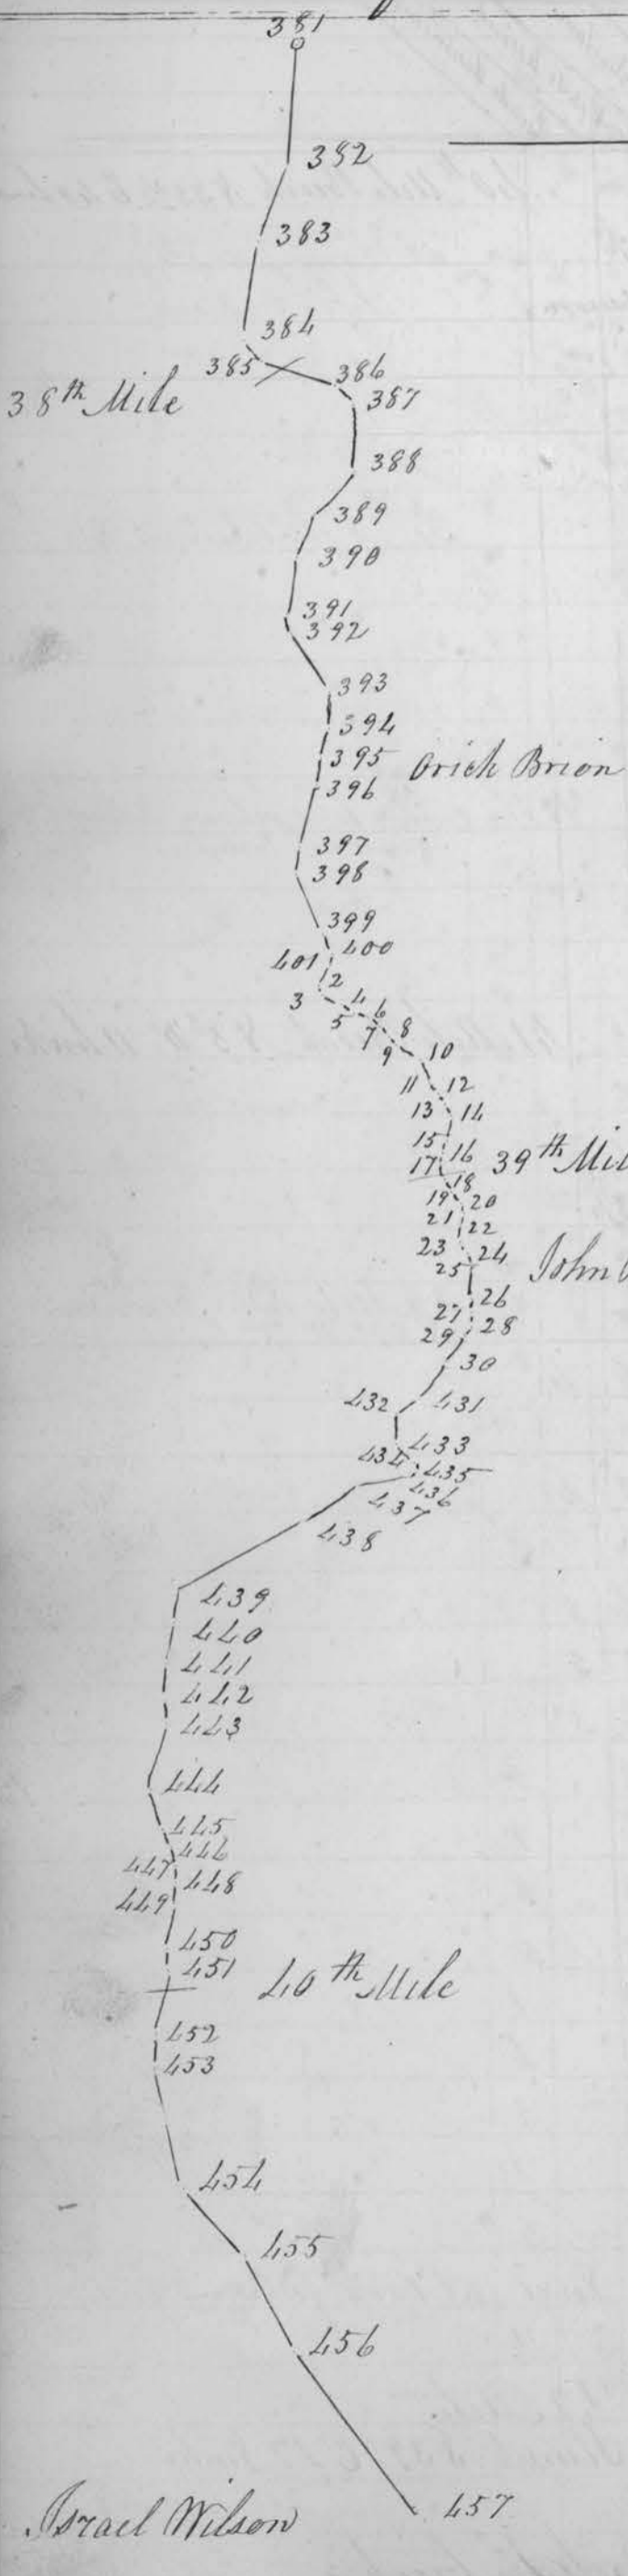 381
382
383
384
385 386
38th Mile
387
388
389
390
391
392
393
394
395 Orick Brion
396
397
398
399
400
401
2
3 4
5 6
7 8
9 10
11 12
13 14
15 16
17 39th
18
19 20
21 22
23 24
25 John
26
27 28
29
30
432 431
433
434 435
436
437
438
439
440
441
442
443
444
445
446
447 448
449
450
451 40th Mile
452
453
454
455
456
457
Israel Wilson